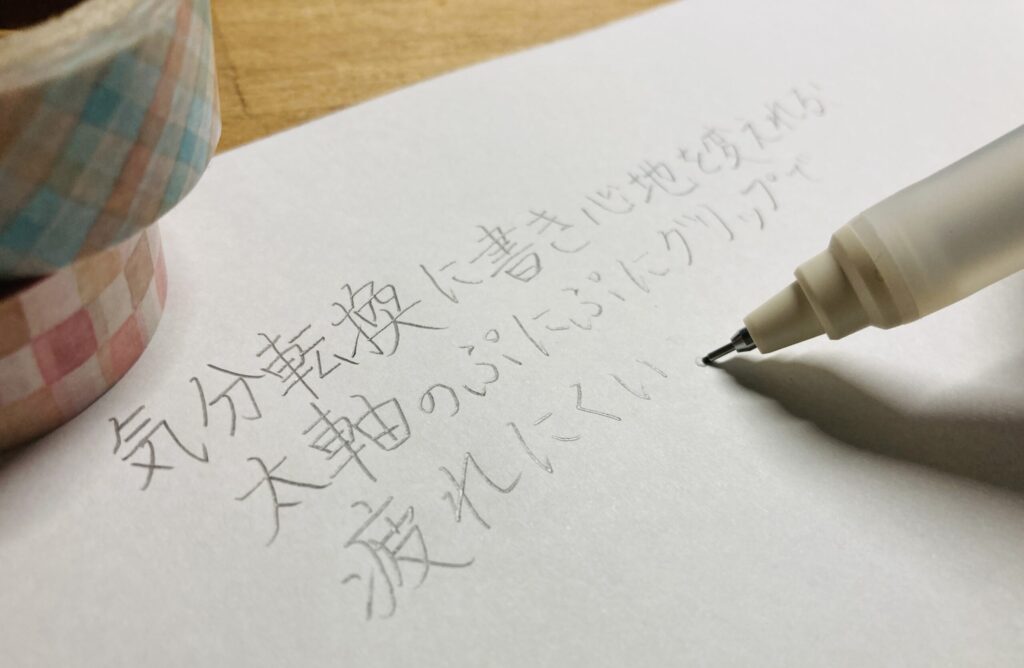 気分転換に書き心地を変えれるが
太軸のぷにぷにグリップで
疲れにくい。